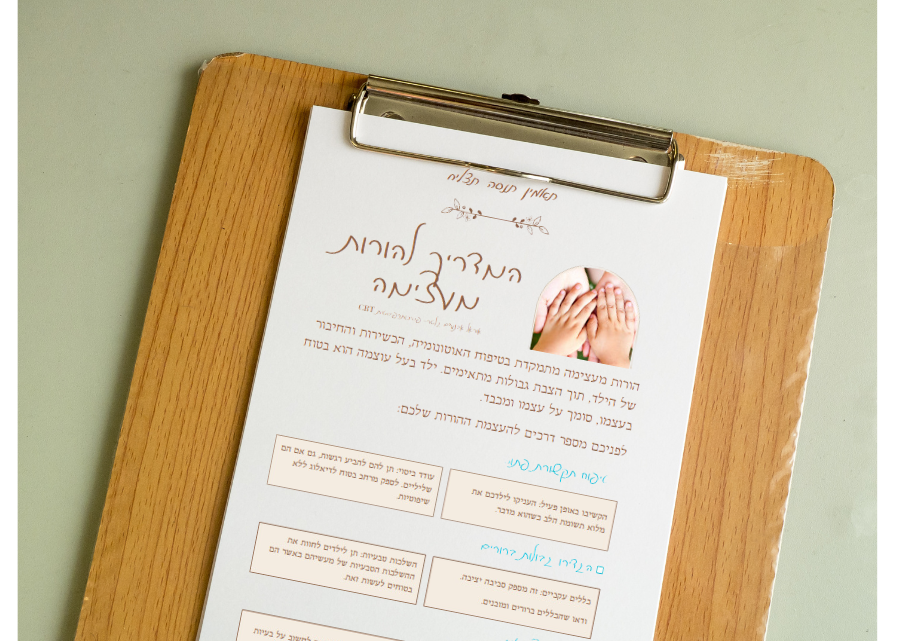 תאמין תנסה תצליח
המדריך להורות
מעצימה
CBT
הורות מעצימה מתמקדת בטיפוח האוטונומיה, הכשירות והחיבור
של הילד, תוך הצבת גבולות מתאימים. ילד בעל עוצמה הוא בטוח
בעצמו, סומך על עצמו ומכבד.
לפניכם מספר דרכים להעצמת ההורות שלכם:
טיפוח תקשורת פתוחה
הקשיבו באופן פעיל: העניקו לילדכם את
מלוא תשומת הלב כשהוא מדבר.
עודד ביטוי: תן להם להביע רגשות, גם אם הם
שליליים. לספק מרחב בטוח לדיאלוג ללא
שיפוטיות.
הגדירו גבולות ברורים
כללים עקביים: זה מספק סביבה יציבה.
ודאו שהכללים ברורים ומובנים.
השלכות טבעיות: תן לילדים לחוות את
ההשלכות הטבעיות של מעשיהם כאשר הם
בטוחים לעשות זאת.
לחשוב על בעיות